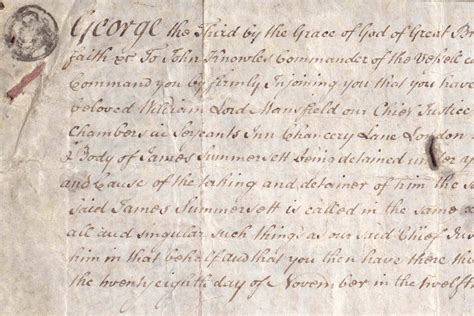 George the Third by the Grace of God of Great Br
faith &c To John Knowles Commander of the Vessell c
Command you by firmly Injoining you that you have
beloved William Lord Mansfield our Chief Justice
Chambers in Serjeants Inn Chancery Lane London
& Body of James Summersett being detained under y
and Cause of the taking and detainer of him the s
said James Summersett is called in the same
all and singular such things as our said Chief Jus
him in that behalf and that you then have there th
the twenty eighth day of November in the twelfth